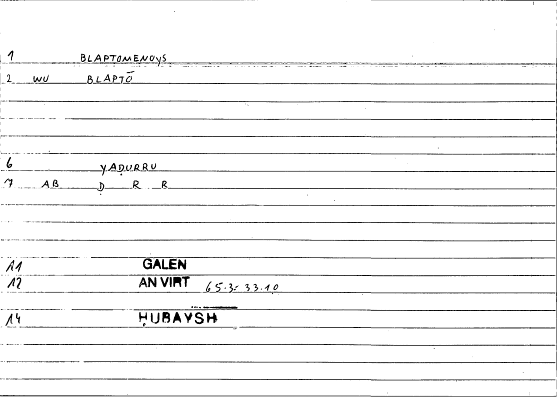 1 BLAPTOMENOYS
2 WU BLAPTŌ
6 YAḌURRU
7 AB Ḍ R R
11 GALEN
12 AN VIRT 65.3- 33.10
14 ḤUBAYSH